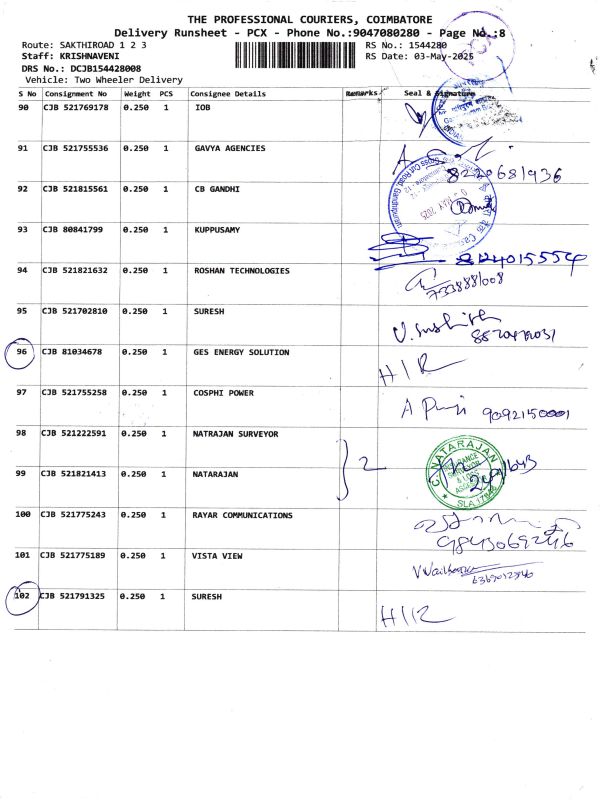 THE PROFESSIONAL COURIERS, COIMBATORE
Delivery Runsheet - PCX - Phone No.:9047080280 - Page No.:8
Route: SAKTHIROAD 1 2 3
RS No.: 1544280
Staff: KRISHNAVENI
RS Date: 03-May-2025
DRS No.: DCJB154428008
Vehicle: Two Wheeler Delivery
S No Consignment No Weight PCS Consignee Details Remarks Seal & Signature
90 CJB 521769178 0.250 1 IOB
91 CJB 521755536 0.250 1 GAVYA AGENCIES
8220681936
92 CJB 521815561 0.250 1 CB GANDHI
93 CJB 80841799 0.250 1 KUPPUSAMY
94 CJB 521821632 0.250 1 ROSHAN TECHNOLOGIES
7338881008
95 CJB 521702810 0.250 1 SURESH
96 CJB 81034678 0.250 1 GES ENERGY SOLUTION
H/R
97 CJB 521755258 0.250 1 COSPHI POWER
9092150001
98 CJB 521222591 0.250 1 NATRAJAN SURVEYOR
2
C. NATARAJAN
SLA.17846
99 CJB 521821413 0.250 1 NATARAJAN
100 CJB 521775243 0.250 1 RAYAR COMMUNICATIONS
9843069246
101 CJB 521775189 0.250 1 VISTA VIEW
102 CJB 521791325 0.250 1 SURESH
H/R